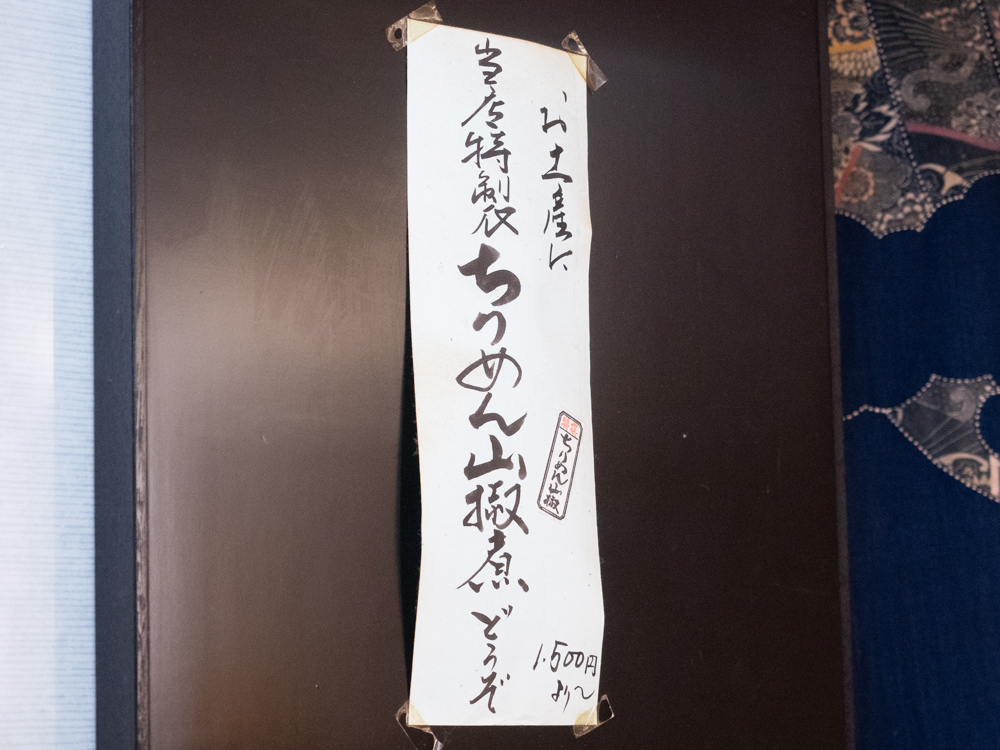 お土産に
当店特製ちりめん山椒煮どうぞ
ちりめん山椒
1.500円
より〜